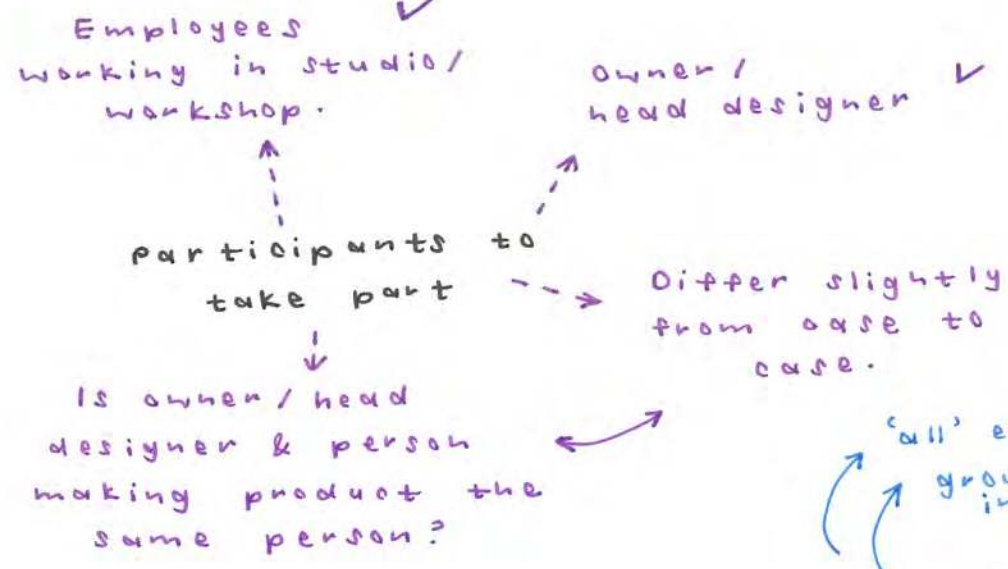 Employees
working in studio/
workshop.
owner /
head designer
participants to
take part
Differ slightly
from case to
case.
Is owner / head
designer & person
making product the
same person?
'all'